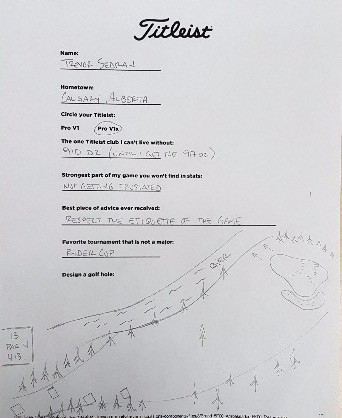 Titleist
Name:
TREVOR
Hometown:
CALGARY, ALBERTA
Circle your Titleist:
Pro V1 Pro V1x
The one Titleist club I can't live without:
910 D2 (UNTIL I GET THE 917 D2)
Strongest part of my game you won't find in stats:
NOT GETTING FRUSTRATED
Best piece of advice ever received:
RESPECT THE ETIQUETTE OF THE GAME
Favorite tournament that is not a major:
RYDER CUP
Design a golf hole:
13
PAR 4
413